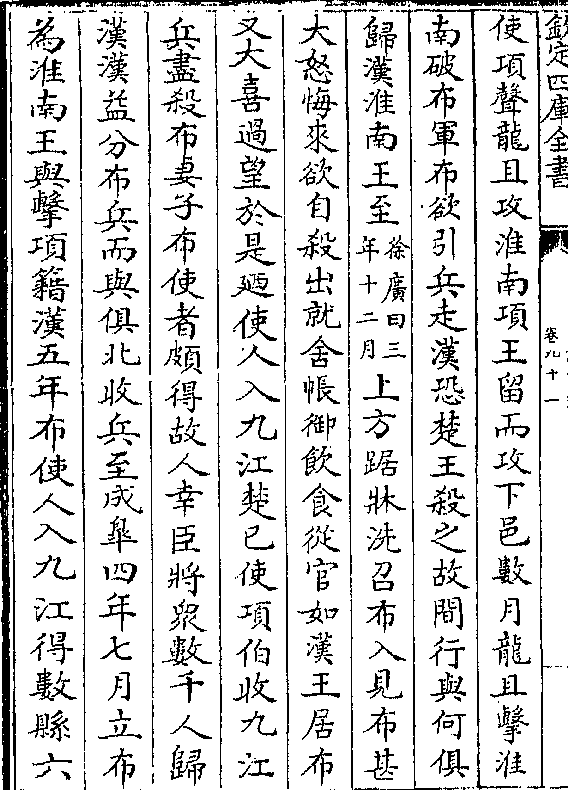 欽定四庫全書
卷九十一
使項聲龍且攻淮南項王留而攻下邑數月龍且擊淮
南破布軍布欲引兵走漢恐楚王殺之故間行與何俱
歸漢淮南王至徐廣曰三年十二月上方踞牀洗召布入見布甚
大怒悔來欲自殺出就舍帳御飲食從官如漢王居布
又大喜過望於是廼使人入九江楚已使項伯收九江
兵盡殺布妻子布使者頗得故人幸臣將眾數千人歸
漢漢益分布兵而與俱北收兵至成臯四年七月立布
為淮南王與擊項籍漢五年布使人入九江得數縣六